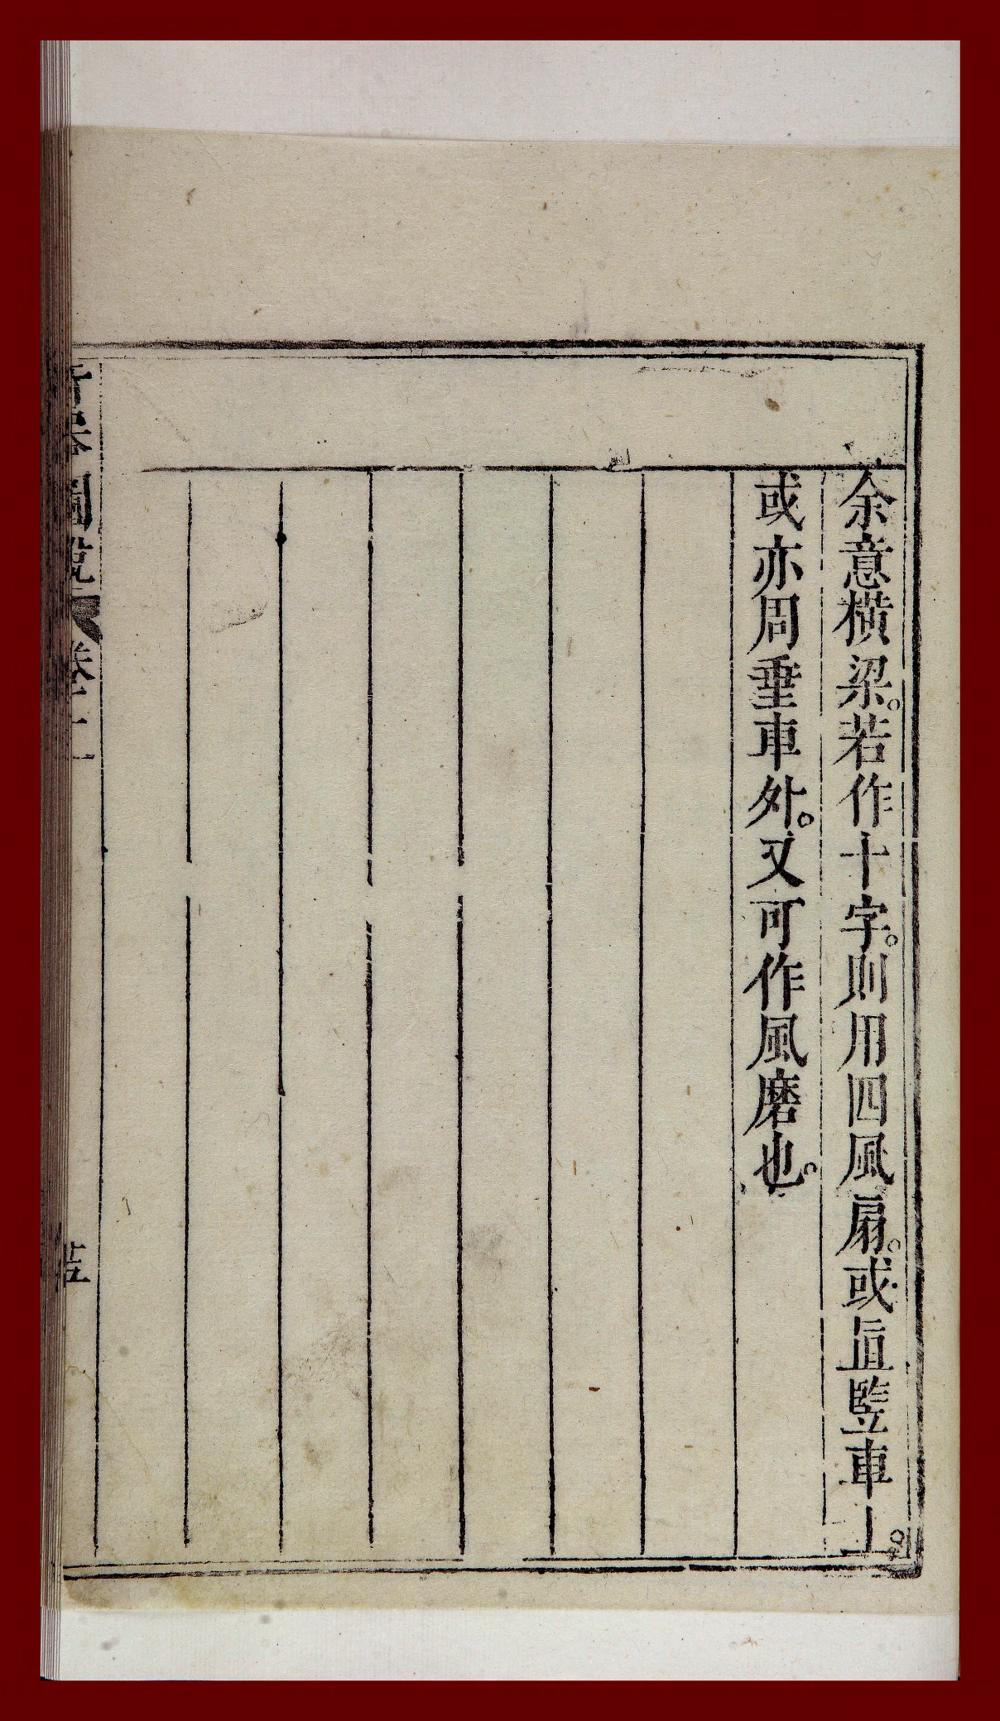 余意橫梁。若作十字。則用四風扇。或直竪車上。
或亦周垂車外。又可作風磨也。
奇器圖說
卷